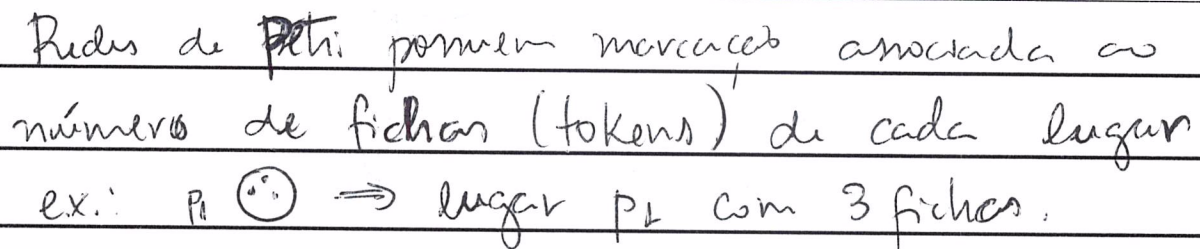 Redes de Petri possuem marcação associada ao
número de fichas (tokens) de cada lugar
ex.: p1 ⇒ lugar p1 com 3 fichas.